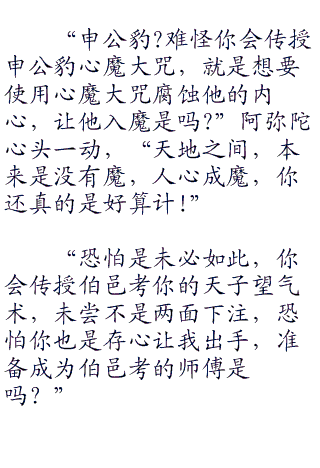 “申公豹?难怪你会传授
申公豹心魔大咒，就是想要
使用心魔大咒腐蚀他的内
心，让他入魔是吗?”阿弥陀
心头一动，“天地之间，本
来是没有魔，人心成魔，你
还真的是好算计!”
“恐怕是未必如此，你
会传授伯邑考你的天子望气
术，未尝不是两面下注，恐
怕你也是存心让我出手，准
备成为伯邑考的师傅是
吗？”